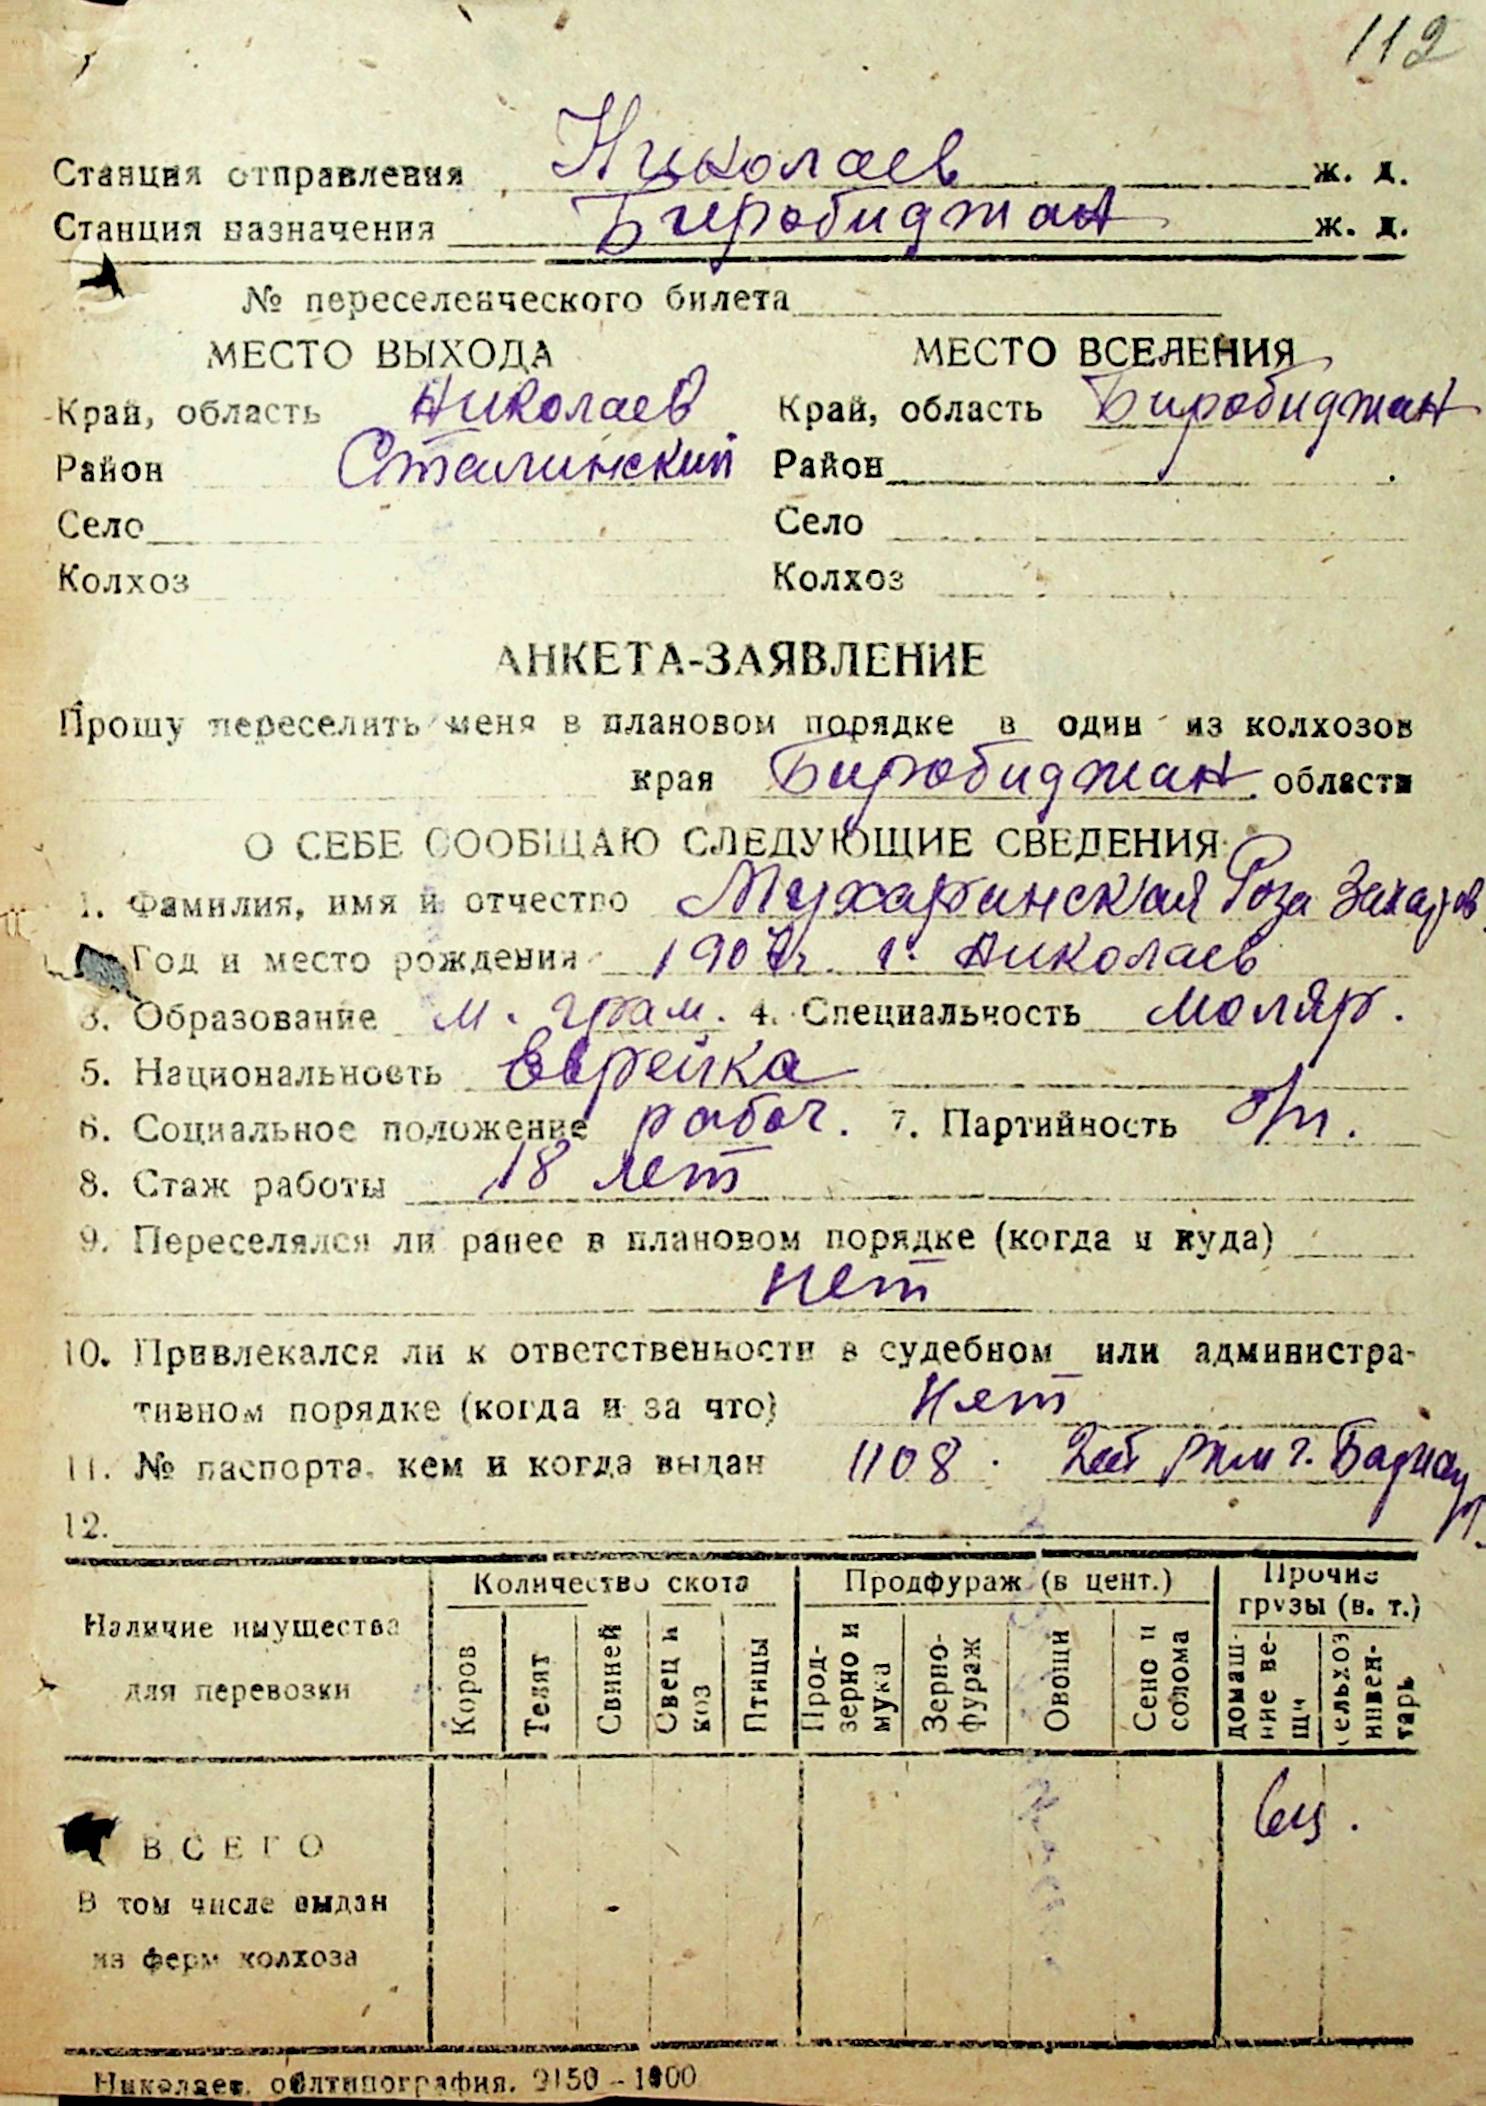 112
Станция отправления Николаев ж. д.
Станция назначения Биробиджан ж. д.
№ переселенческого билета
МЕСТО ВЫХОДА МЕСТО ВСЕЛЕНИЯ
Край, область Николаев Край, область Биробиджан
Район Сталинский Район
Село Село
Колхоз Колхоз
АНКЕТА-ЗАЯВЛЕНИЕ
Прошу переселить меня в плановом порядке в один из колхозов
края Биробиджан области
О СЕБЕ СООБЩАЮ СЛЕДУЮЩИЕ СВЕДЕНИЯ
1. Фамилия, имя и отчество Мухаринская Роза Захаров
Год и место рождения 1907 г. г. Николаев
3. Образование м. грам. 4. Специальность маляр.
5. Национальность Еврейка
6. Социальное положение рабоч. 7. Партийность б/п.
8. Стаж работы 18 лет
9. Переселялся ли ранее в плановом порядке (когда и куда)
нет
10. Привлекался ли к ответственности в судебном или администра-
тивном порядке (когда и за что) нет
11. № паспорта, кем и когда выдан 1108 г.
12.
Наличие имущества для перевозки Количество скота Продфураж (в цент.) Прочие грузы (в. т.)
Коров Телят Свиней Свец и коз Птицы Прод-зерно и мука Зерно-фураж Овощи Сено и солома домаш-ние ве-щи сельхоз инвен-тарь
ВСЕГО
В том числе выдан
из ферм колхоза
Николаев. облтипография. 2150-1000